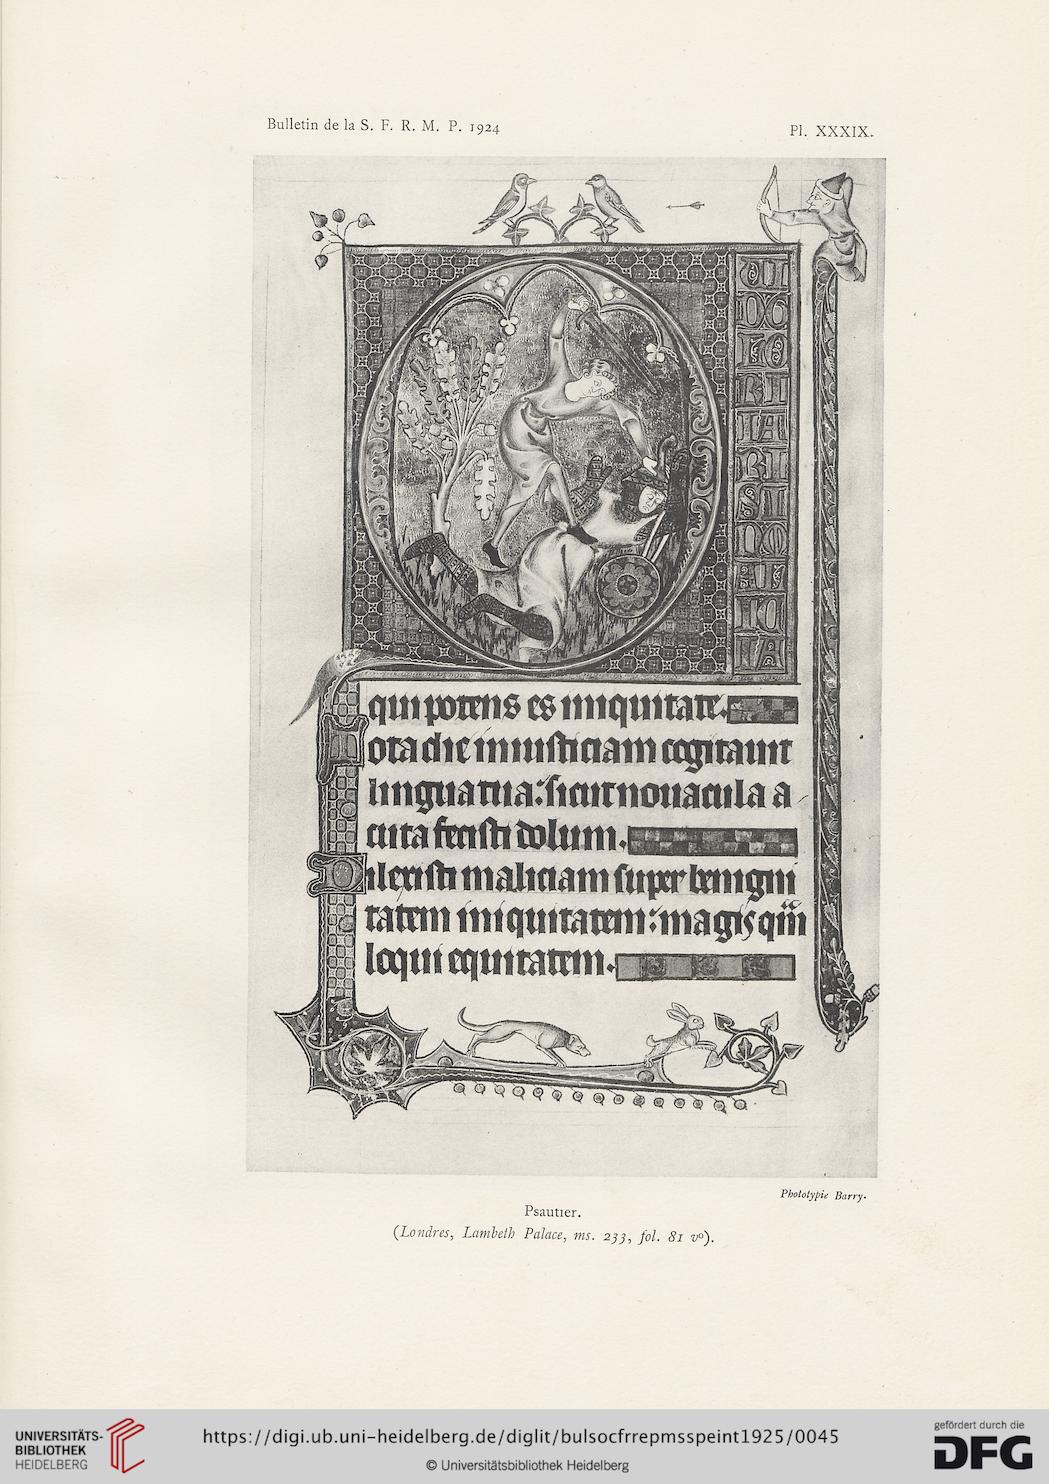 Bulletin de la S. F. R. M. P. 1924
Pl. XXXIX.
QUI
DG
LO
RI
IA
RI
S IN
MA
LI
CI
IA
qui potens es iniquitate.
Tota die iniusticiam cogitauit
lingua tua: sicut nouacula a
cuta fecisti dolum.
Dilexisti maliciam super benigni
tatem iniquitatem: magis qm̃
loqui equitatem.
Phototypie Barry.
Psautier.
(Londres, Lambeth Palace, ms. 233, fol. 81 vº).
UNIVERSITÄTS-
BIBLIOTHEK
HEIDELBERG
https://digi.ub.uni-heidelberg.de/diglit/bulsocfrrepmsspeint1925/0045
© Universitätsbibliothek Heidelberg
gefördert durch die
DFG